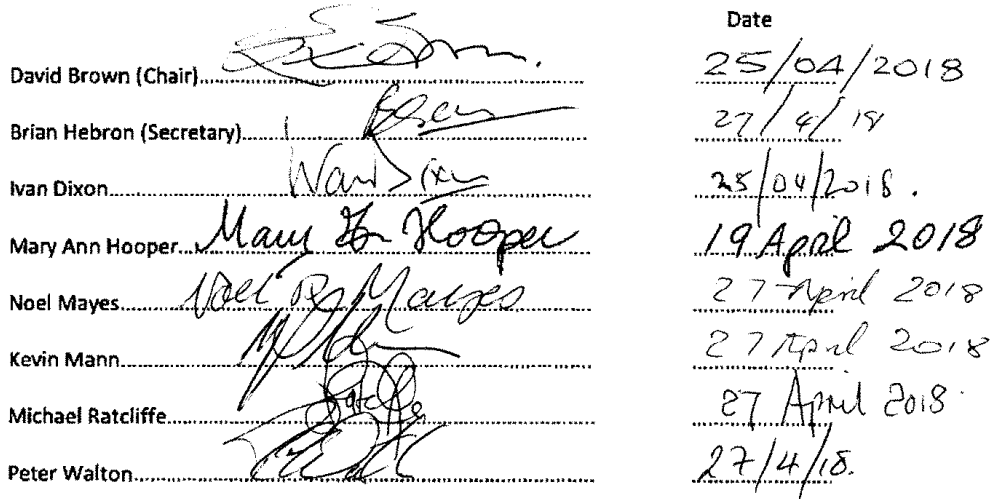 Date
David Brown (Chair)........ 25/04/2018
Brian Hebron (Secretary)........ 27/4/18
Ivan Dixon........ Ivan Dixon 25/04/2018.
Mary Ann Hooper........ Mary Ann Hooper 19 April 2018
Noel Mayes........ Noel Mayes 27 April 2018
Kevin Mann........ 27 April 2018
Michael Ratcliffe........ 27 April 2018
Peter Walton........ 27/4/18.